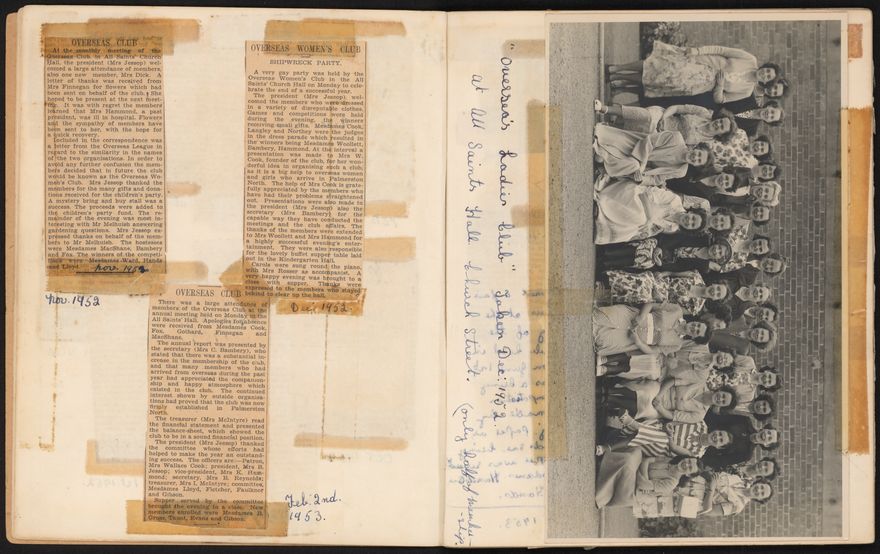 OVERSEAS CLUB
At the monthly meeting of the
Overseas Club in All Saints' Church
Hall, the president (Mrs Jessop) wel-
comed a large attendance of members,
also one new member, Mrs Dick. A
letter of thanks was received from
Mrs Finnegan for flowers which had
been sent on behalf of the club. She
hoped to be present at the next meet-
ing. It was with regret the members
learned that Mrs Hammond, a past
president, was ill in hospital. Flowers
and the sympathy of members have
been sent to her, with the hope for
a quick recovery.
Included in the correspondence was
a letter from the Overseas League in
regard to the similarity in the names
of the two organisations. In order to
avoid any further confusion the mem-
bers decided that in future the club
would be known as the Overseas Wo-
men's Club. Mrs Jessop thanked the
members for the many gifts and dona-
tions received for the children's party.
A mystery bring and buy stall was a
success. The proceeds were added to
the children's party fund. The re-
mainder of the evening was most in-
teresting with Mr Melhuish answering
gardening questions. Mrs Jessop ex-
pressed thanks on behalf of the mem-
bers to Mr Melhuish. The hostesses
were Mesdames MacShane, Bambery
and Fox. The winners of the competi-
tions were Mesdames Ward, Hands
and Lloyd.
Nov. 1952
Nov. 1952
OVERSEAS WOMEN'S CLUB
SHIPWRECK PARTY.
A very gay party was held by the
Overseas Women's Club in the All
Saints' Church Hall on Monday to cele-
brate the end of a successful year.
The president (Mrs Jessop) wel-
comed the members who were dressed
in a variety of disreputable clothes.
Games and competitions were held
during the evening, the winners
receiving small gifts. Mesdames Cook,
Langley and Northey were the judges
in the dress parade which resulted in
the winners being Mesdames Woollett,
Bambery, Hammond. At the interval a
presentation was made to Mrs W.
Cook, founder of the club, for her won-
derful idea in organising such a club,
as it is a big help to overseas women
and girls who arrive in Palmerston
North. The help of Mrs Cook is grate-
fully appreciated by the members who
have had their problems straightened
out. Presentations were also made to
the president (Mrs Jessop) also the
secretary (Mrs Bambery) for the
capable way they have conducted the
meetings and the club affairs. The
thanks of the members were extended
to Mrs Woollett and Mrs Hammond for
a highly successful evening's enter-
tainment. They were also responsible
for the lovely buffet supper table laid
out in the Kindergarten Hall.
Carols were sung round the piano,
with Mrs Rosser as accompanist. A
very happy evening was brought to a
close with supper. Thanks were
expressed to the members who stayed
behind to clear up the hall.
Dec. 1952.
OVERSEAS CLUB
There was a large attendance of
members of the Overseas Club at the
annual meeting held on Monday at the
All Saints' Hall. Apologies for absence
were received from Mesdames Cook,
Fox, Gothard, Finnegan and
MacShane.
The annual report was presented by
the secretary (Mrs C. Bambery), who
stated that there was a substantial in-
crease in the membership of the club,
and that many members who had
arrived from overseas during the past
year had appreciated the companion-
ship and happy atmosphere which
existed in the club. The continued
interest shown by outside organisa-
tions had proved that the club was now
firmly established in Palmerston
North.
The treasurer (Mrs McIntyre) read
the financial statement and presented
the balance-sheet, which showed the
club to be in a sound financial position.
The president (Mrs Jessop) thanked
the committee whose efforts had
helped to make the year an outstand-
ing success. The officers are:—Patron,
Mrs Wallace Cook; president, Mrs B.
Jessop; vice-president, Mrs K. Ham-
mond; secretary, Mrs B. Reynolds;
treasurer, Mrs I. McIntyre; committee,
Mesdames Lloyd, Fletcher, Faulkner
and Gibson.
Supper served by the committee
brought the evening to a close. New
members enrolled were Mesdames B.
Gruar, Tzant, Evans and Gibson.
Feb. 2nd.
1953.
"Oversea's Ladies Club" Taken Dec. 1952.
At All Saints Hall Church Street.
(only half of member-
-ship.